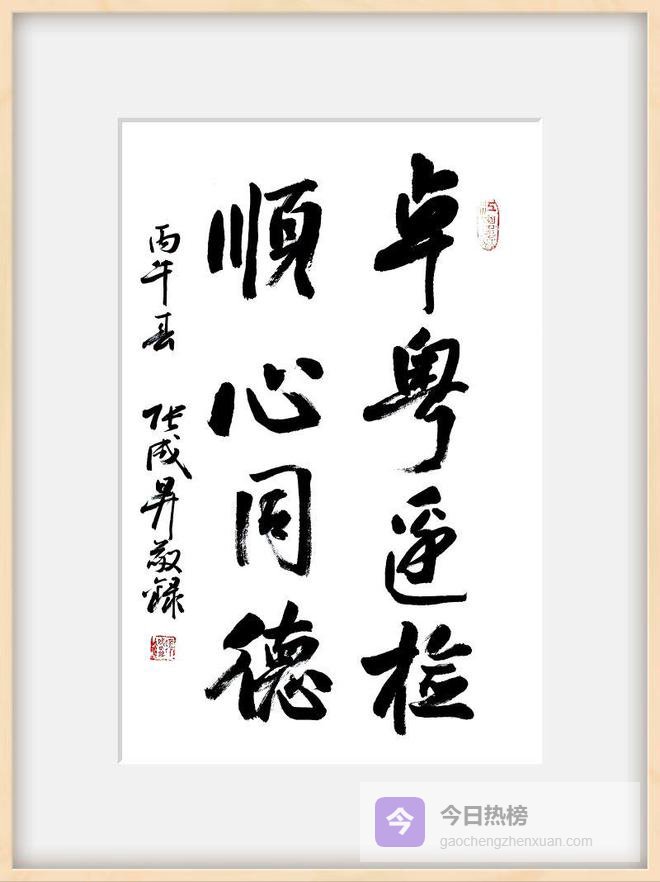 卓粤检
順心同德
丙午春 张成昇敬録
今
今日热榜
gaochengzhenxuan.com